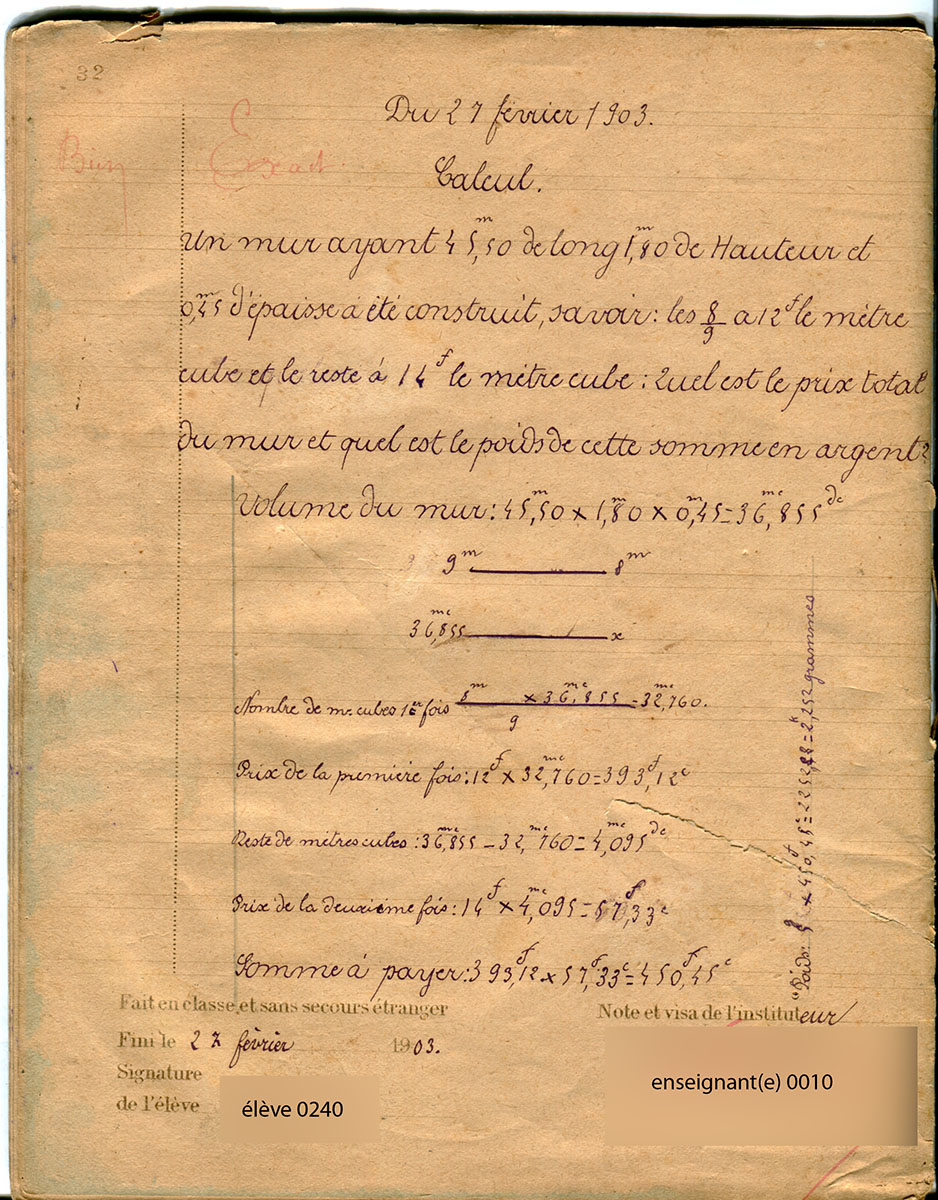 32
Du 27 février 1903.
Bien Exact.
Calcul.
Un mur ayant 45,50 de long 1,80 de Hauteur et
0,45 d'épaisse a été construit, savoir: les 8/9 a 12f le mètre
cube et le reste à 14f le mètre cube: Quel est le prix total
du mur et quel est le poids de cette somme en argent?
Volume du mur: 45m,50 x 1m,80 x 0m,45 = 36mc,855dc
9m ——— 8m
36mc,855 ——— x
Nombre de m. cubes 1er fois 8m x 36mc,855 / 9 = 32mc,760.
Prix de la première fois: 12f x 32mc,760 = 393f,12c
Reste de mètres cubes: 36mc,855 – 32mc,760 = 4mc,095dc
Prix de la deuxième fois: 14f x 4mc,095 = 57f,33c
Somme à payer: 393f,12 x 57f,33c = 450f,45c
Poids: 5g x 450f,45c = 2252g,25 = 2k,252 grammes
Fait en classe et sans secours étranger
Note et visa de l'instituteur
Fini le 27 février 1903.
Signature
de l'élève
élève 0240
enseignant(e) 0010